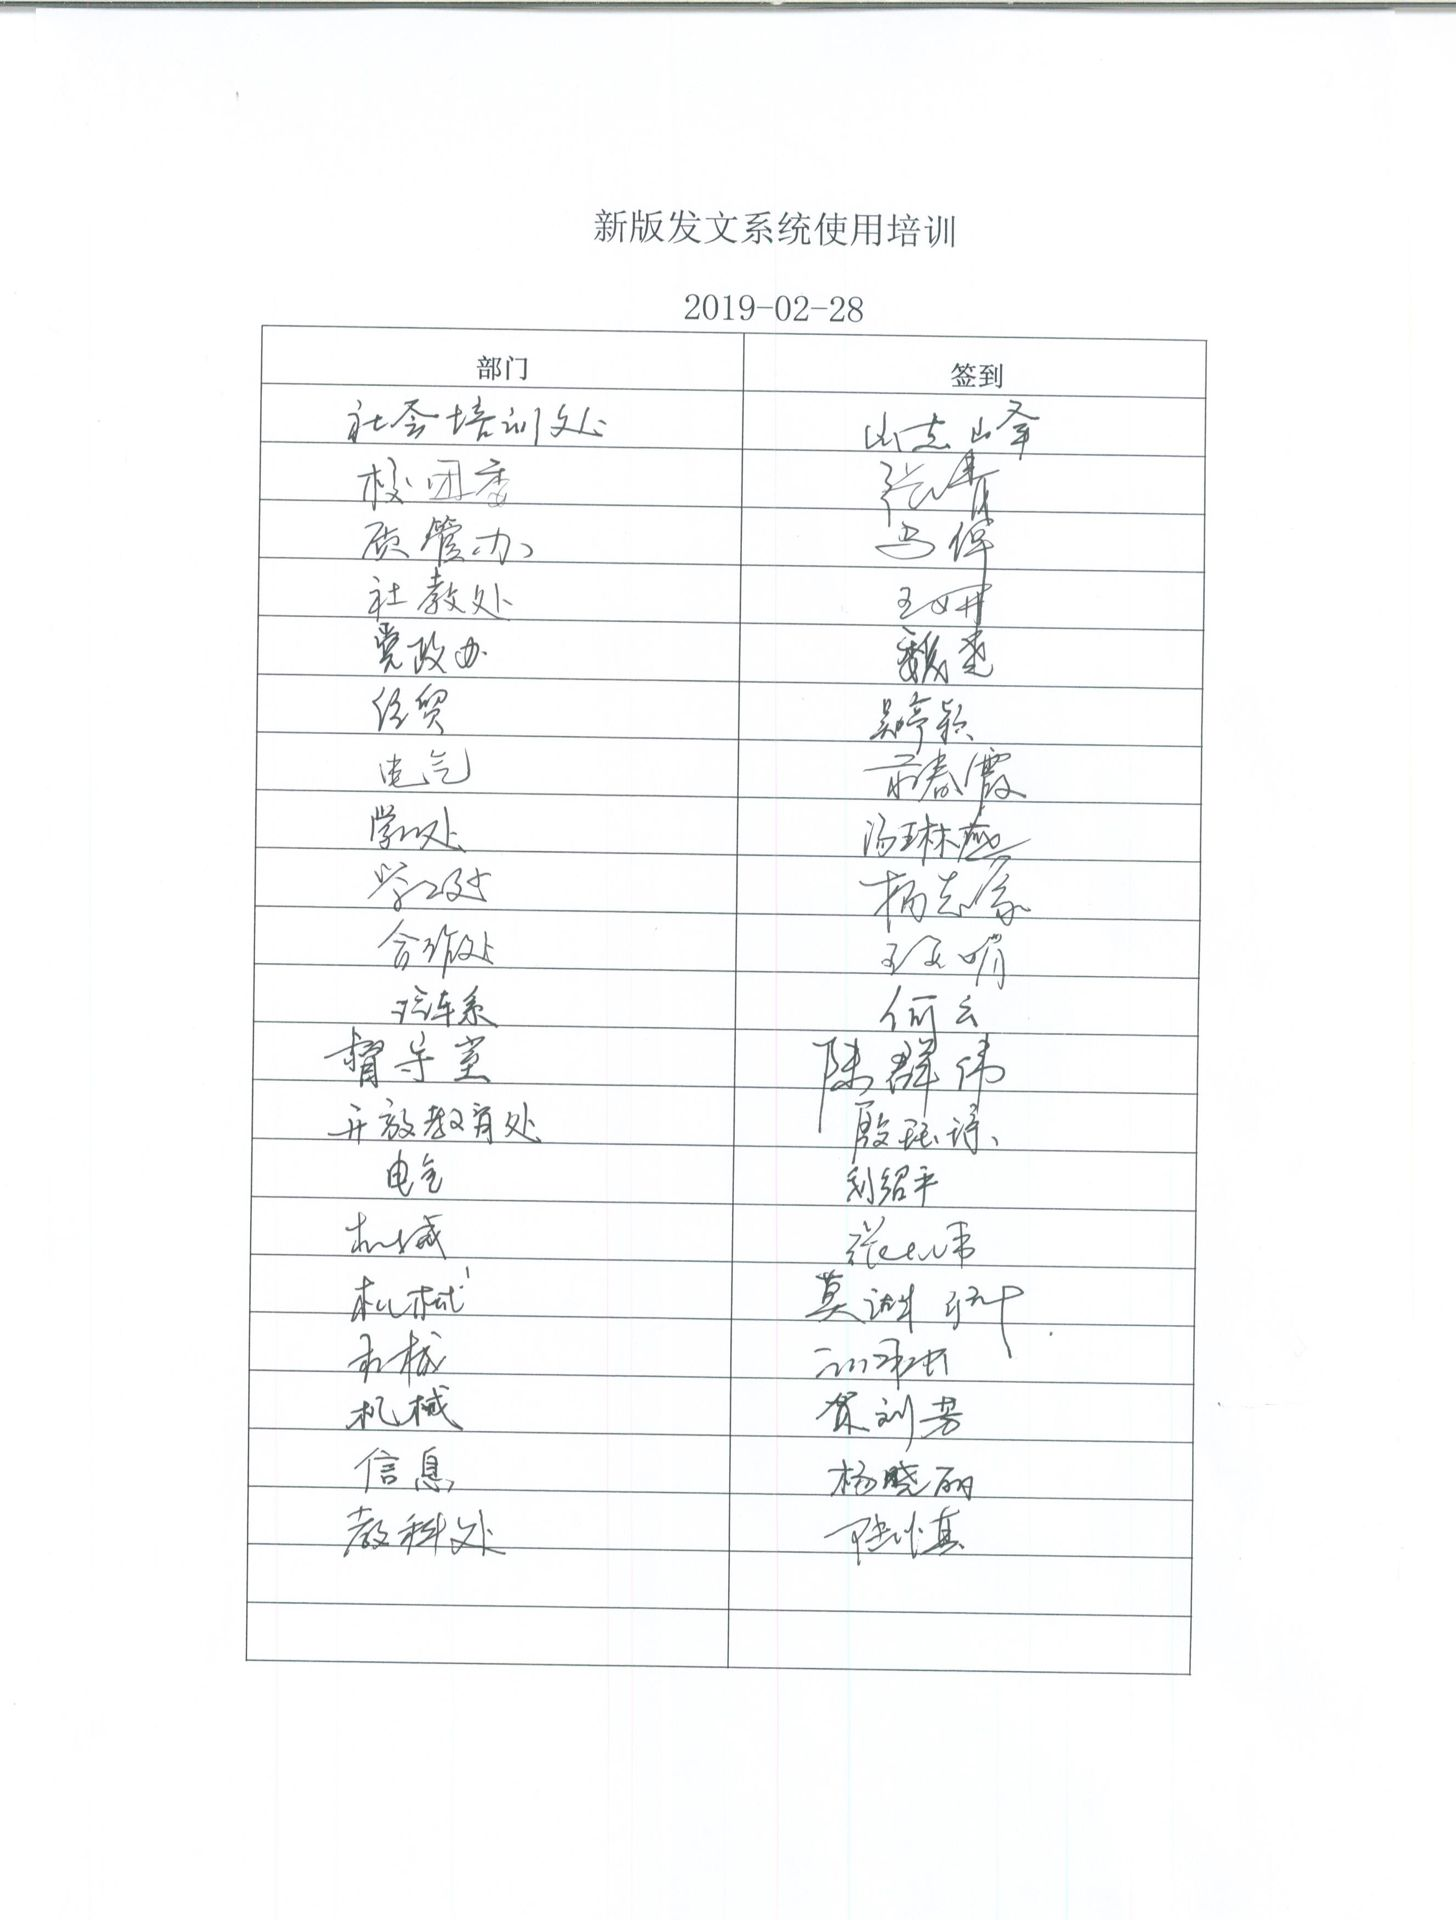 新版发文系统使用培训
2019-02-28
部门 签到
社会培训处 山志峰
校团委 张青
质管办 马伟
社教处 王妍
党政办 魏尧
经贸 吴婷颖
电气 春霞
学工处 汤琳燕
学工处 杨志
合作处 王
汽车系 何云
督导室 陈群伟
开放教育处 殷
电气 刘绍平
机械 张
机械 莫
机械
机械 贺刘芳
信息 杨晓丽
教科处 陆